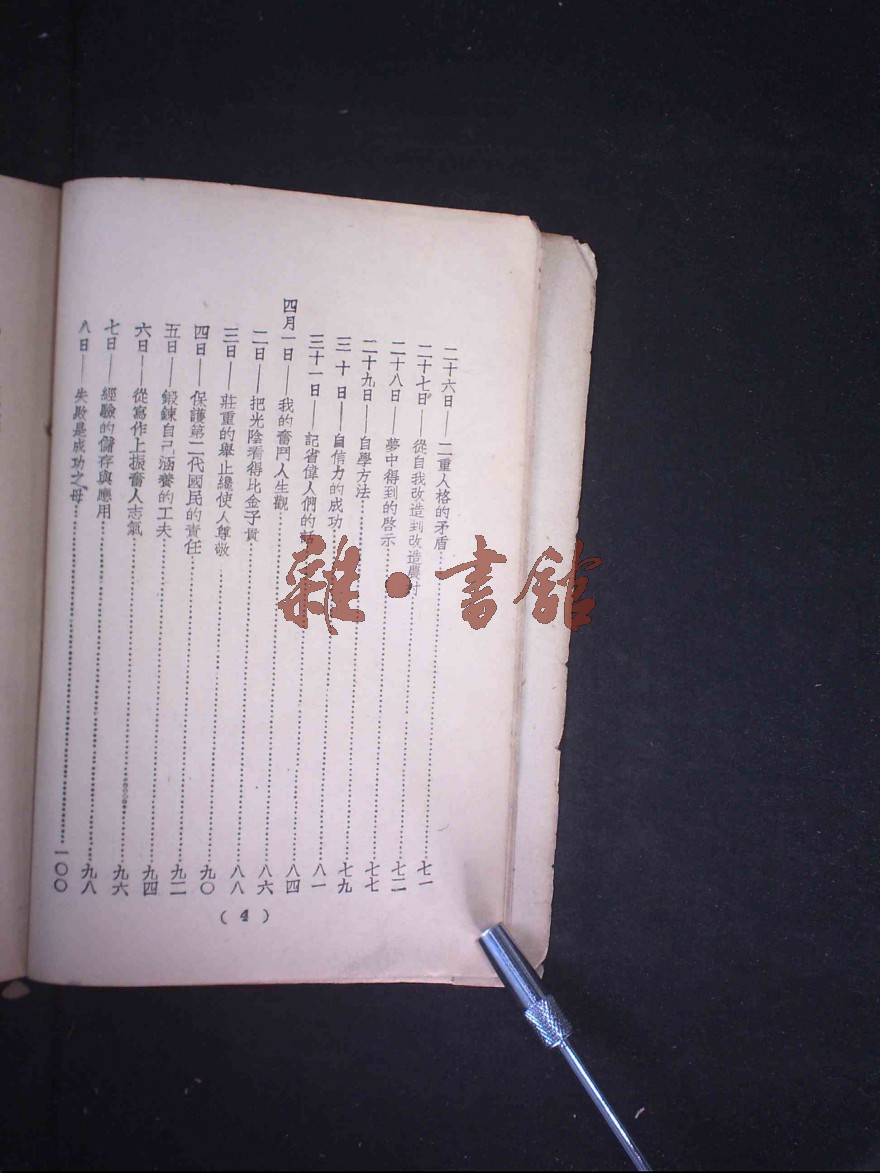 二十六日——二重人格的矛盾……七一
二十七日——從自我改造到改造農村……七二
二十八日——夢中得到的啓示……七七
二十九日——自學方法……七九
三十日——自信力的成功……八一
三十一日——記省偉人們的話……八四
四月一日——我的奮鬥人生觀……八六
二日——把光陰看得比金子貴……八八
三日——莊重的舉止纔使人尊敬……九〇
四日——保護第二代國民的責任……九二
五日——鍛鍊自己涵養的工夫……九四
六日——從寫作上振奮人志氣……九六
七日——經驗的儲存與應用……九八
八日——失敗是成功之母……一〇〇
(4)
雜·書館